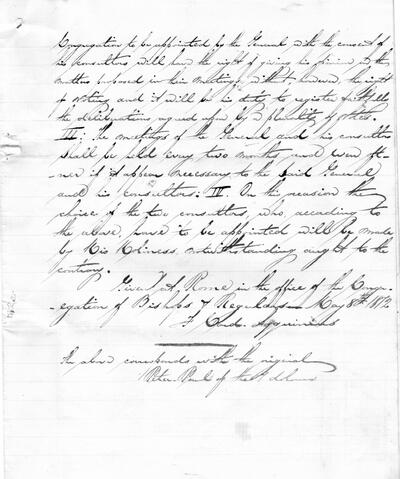 Congregation to be appointed by the General with the consent of
his consultors will have the right of giving his opinion in the
matters proposed in their meetings, without, however, the right
of voting and it will be his duty to register faithfully
the deliberations agreed upon by a plurality of votes.
III: The meetings of the General and his consultors
shall be held every two months and even
if it appear necessary to the said General
and his consultors: IV. On this occasion the
choice of the two consultors, who, according to
the above, have to be appointed will be made
by His Holiness, notwithstanding aught to the
contrary.
Given at Rome in the office of the Congre-
gation of Bishops & Regulars May 8th 1872
Card.
The above corresponds with the original
Peter Paul of the